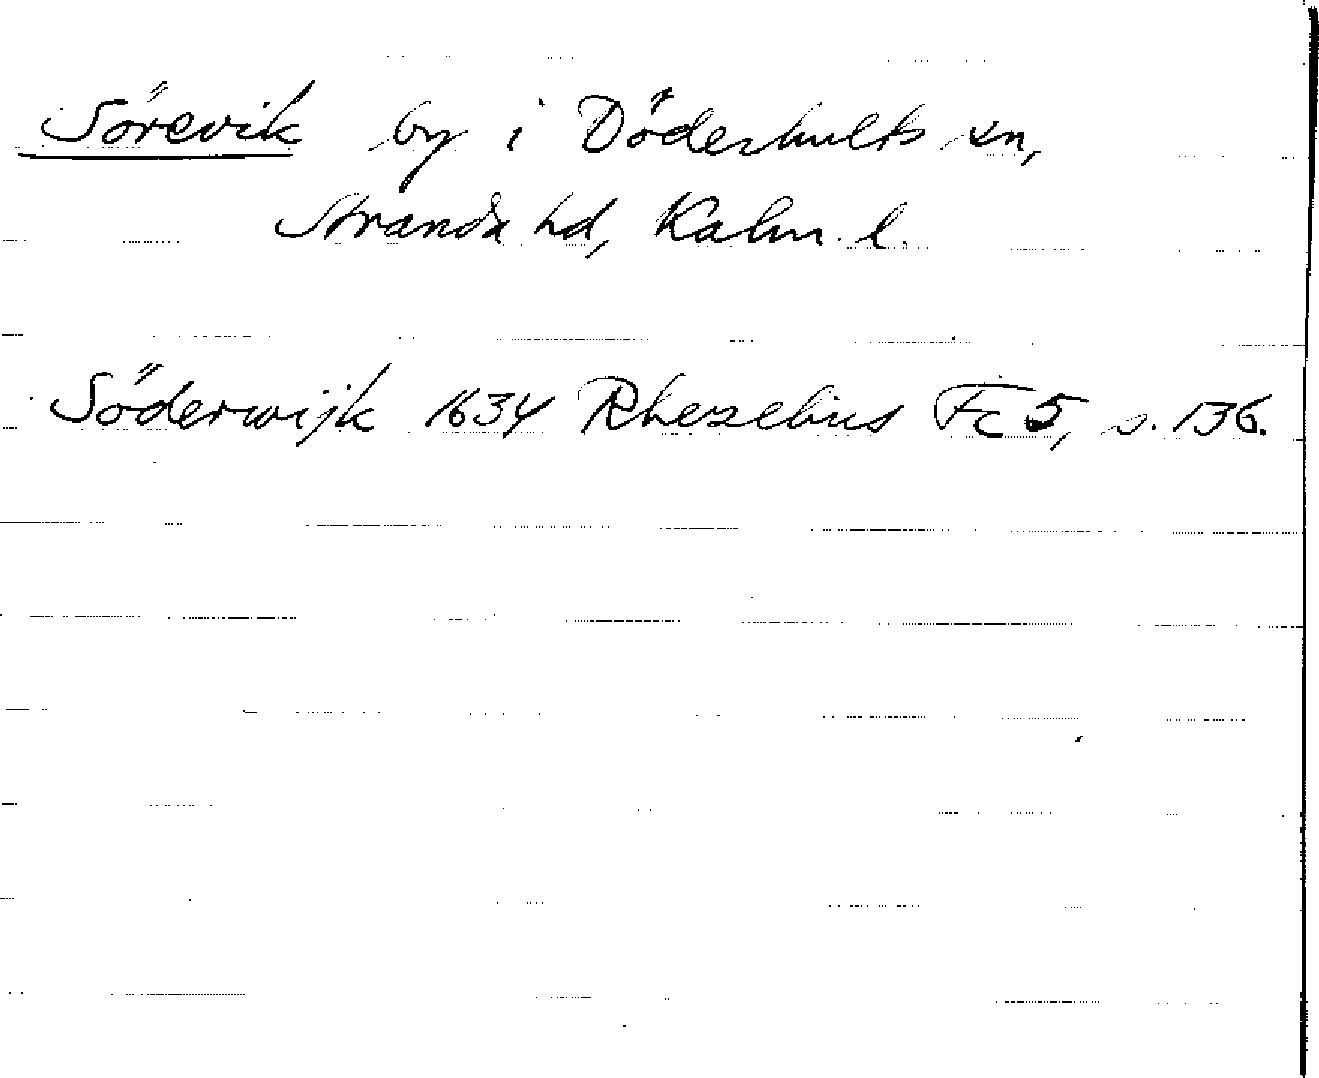 Sörevik by i Döderhults sn,
Stranda hd, Kalm. l.
Söderwijk 1634 Rhezelius Fc 5, s. 136.